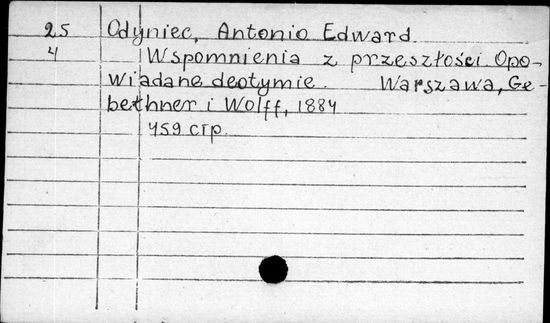 25 Odyniec, Antonio Edward.
4 Wspomnienia z przeszłości Opo-
wiadane deotymie. Warszawa, Ge-
bethner i Wolff, 1884
459 стр.